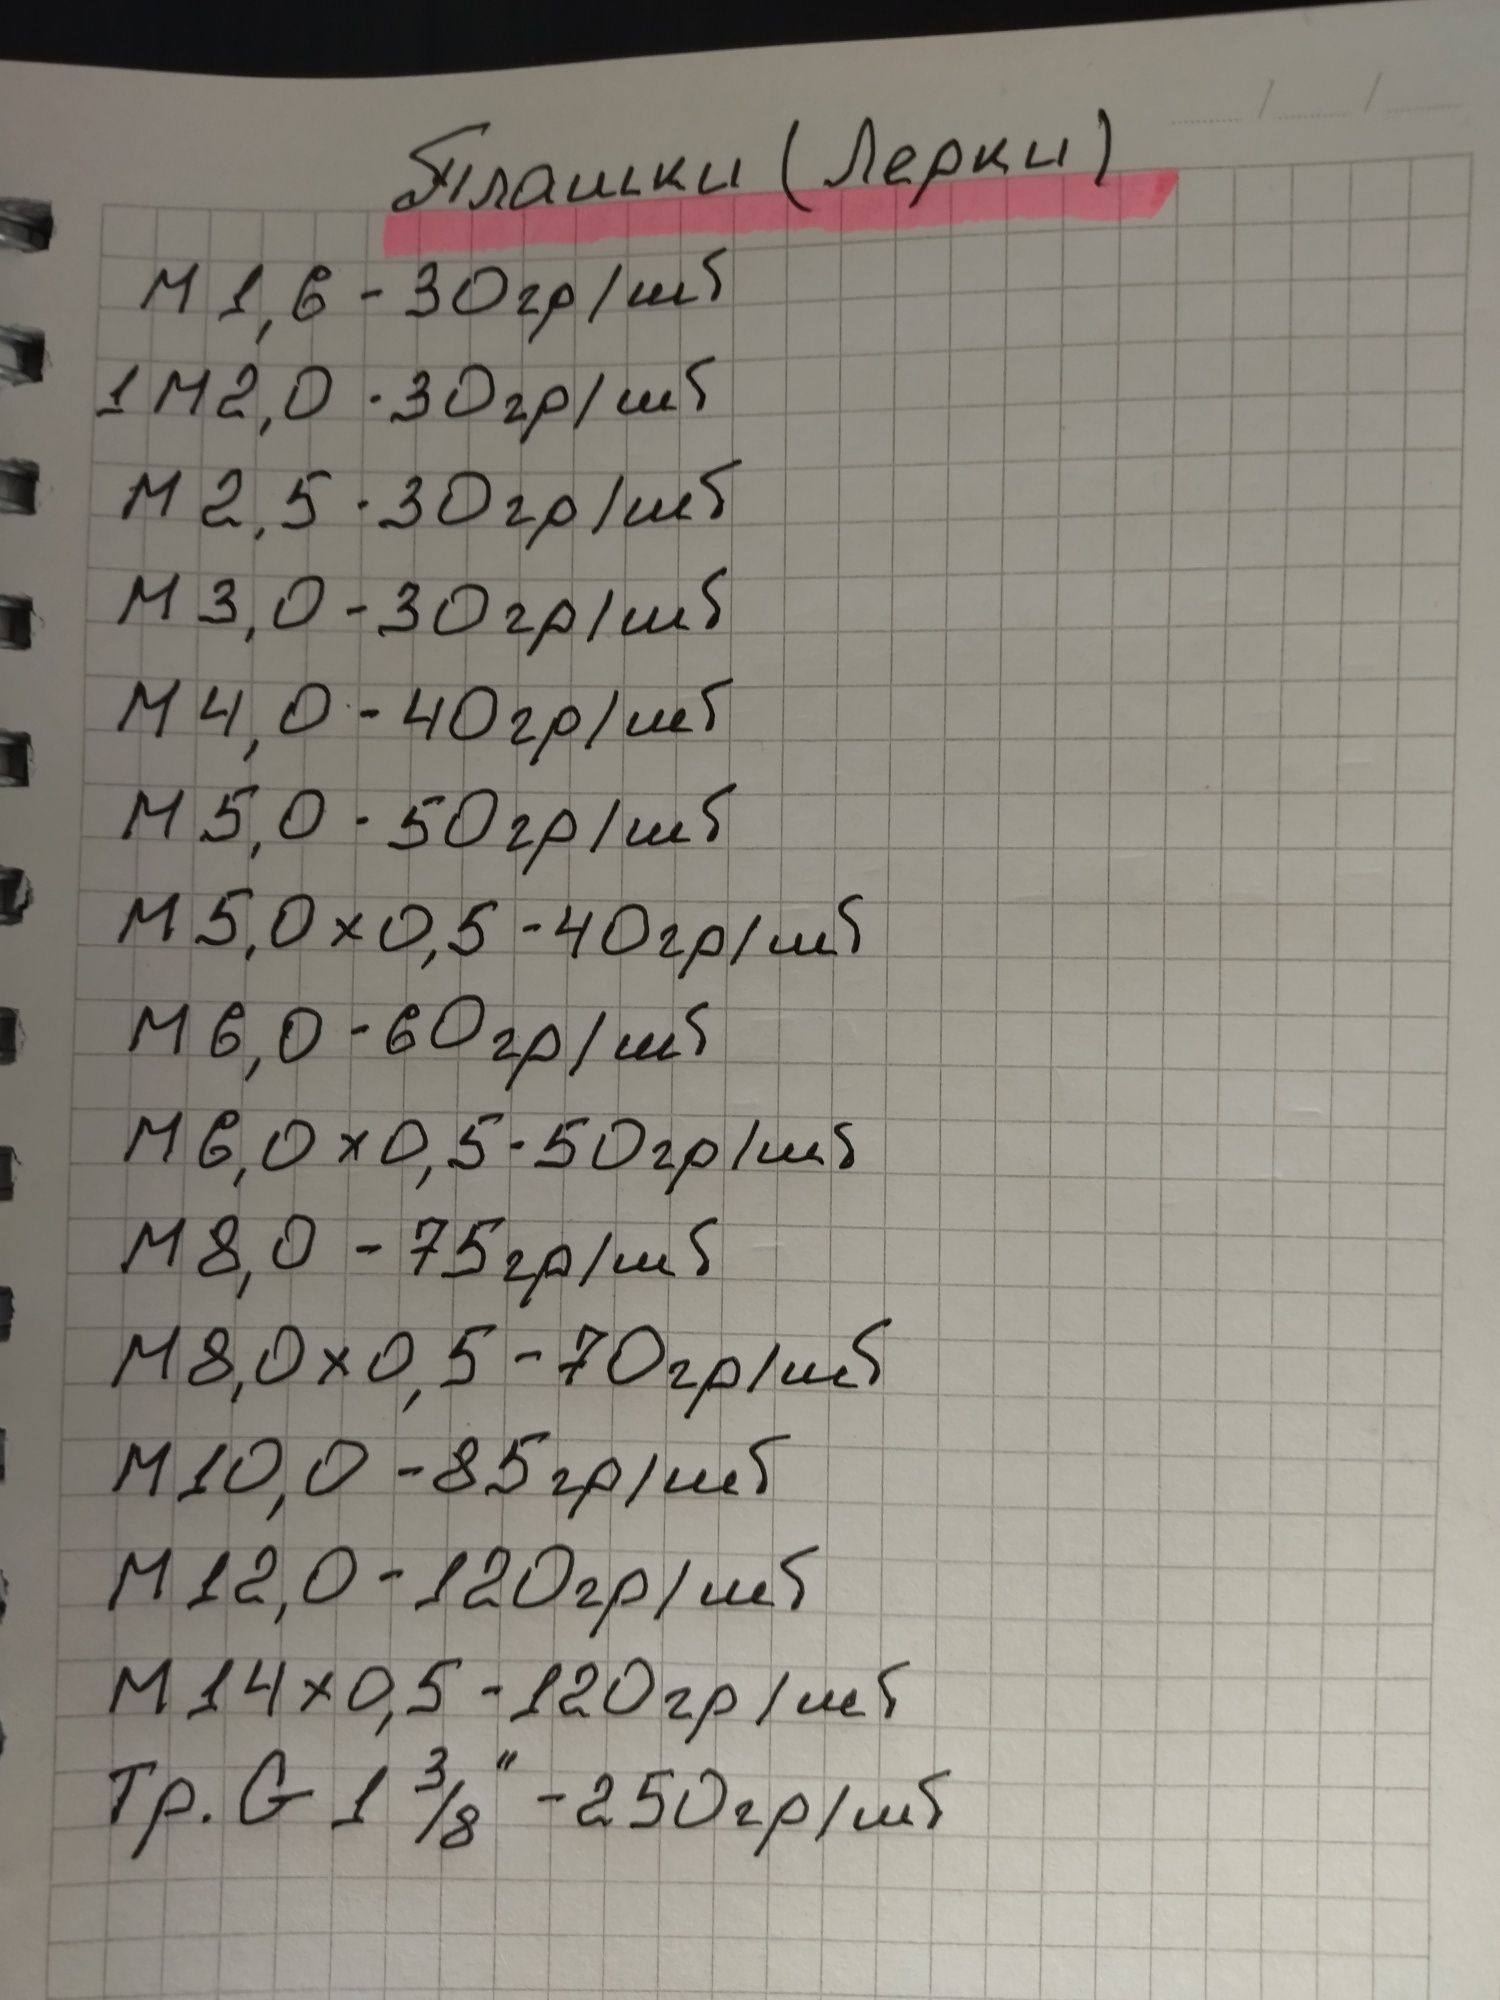 Плашки (Лерки)
М 1,6 - 30гр/шт
1М2,0 - 30гр/шт
М 2,5 - 30гр/шт
М 3,0 - 30гр/шт
М 4,0 - 40гр/шт
М 5,0 - 50гр/шт
М 5,0 х 0,5 - 40гр/шт
М 6,0 - 60гр/шт
М 6,0 х 0,5 - 50гр/шт
М 8,0 - 75гр/шт
М 8,0 х 0,5 - 70гр/шт
М 10,0 - 85гр/шт
М 12,0 - 120гр/шт
М 14 х 0,5 - 120гр/шт
Тр. G 1 3/8" - 250гр/шт